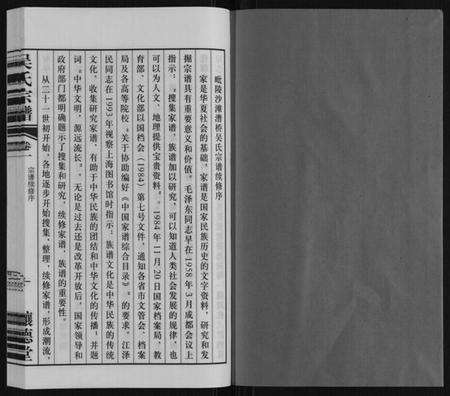 毗陵沙滩漕桥吴氏宗谱续修序
家是华夏社会的基础，家谱是国家民族历史的文字资料，研究和发
掘宗谱具有重要意义和价值。毛泽东同志早在1958年3月成都会议上
指示：“搜集家谱、族谱加以研究，可以知道人类社会发展的规律，也
可以为人文、地理提供宝贵资料。”1984年11月20日国家档案局、教
育部、文化部以国档会（1984）第七号文件，通知各省市文管会、档案
局及各高等院校，关于协助编好《中国家谱综合目录》。的要求。江泽
民同志在1993年视察上海图书馆时指示：族谱文化是中华民族的传统
文化，收集研究家谱，有助于中华民族的团结和中华文化的传播，并题
词：“中华文明，源远流长。”。无论是过去还是改革开放后，国家领导和
政府部门都明确题示了搜集和研究、续修家谱、族谱的重要性。
从二十一世初开始，各地逐步开始搜集、整理、续修家谱，形成潮流，
吴氏宗谱
卷一
宗谱续修序
让德堂